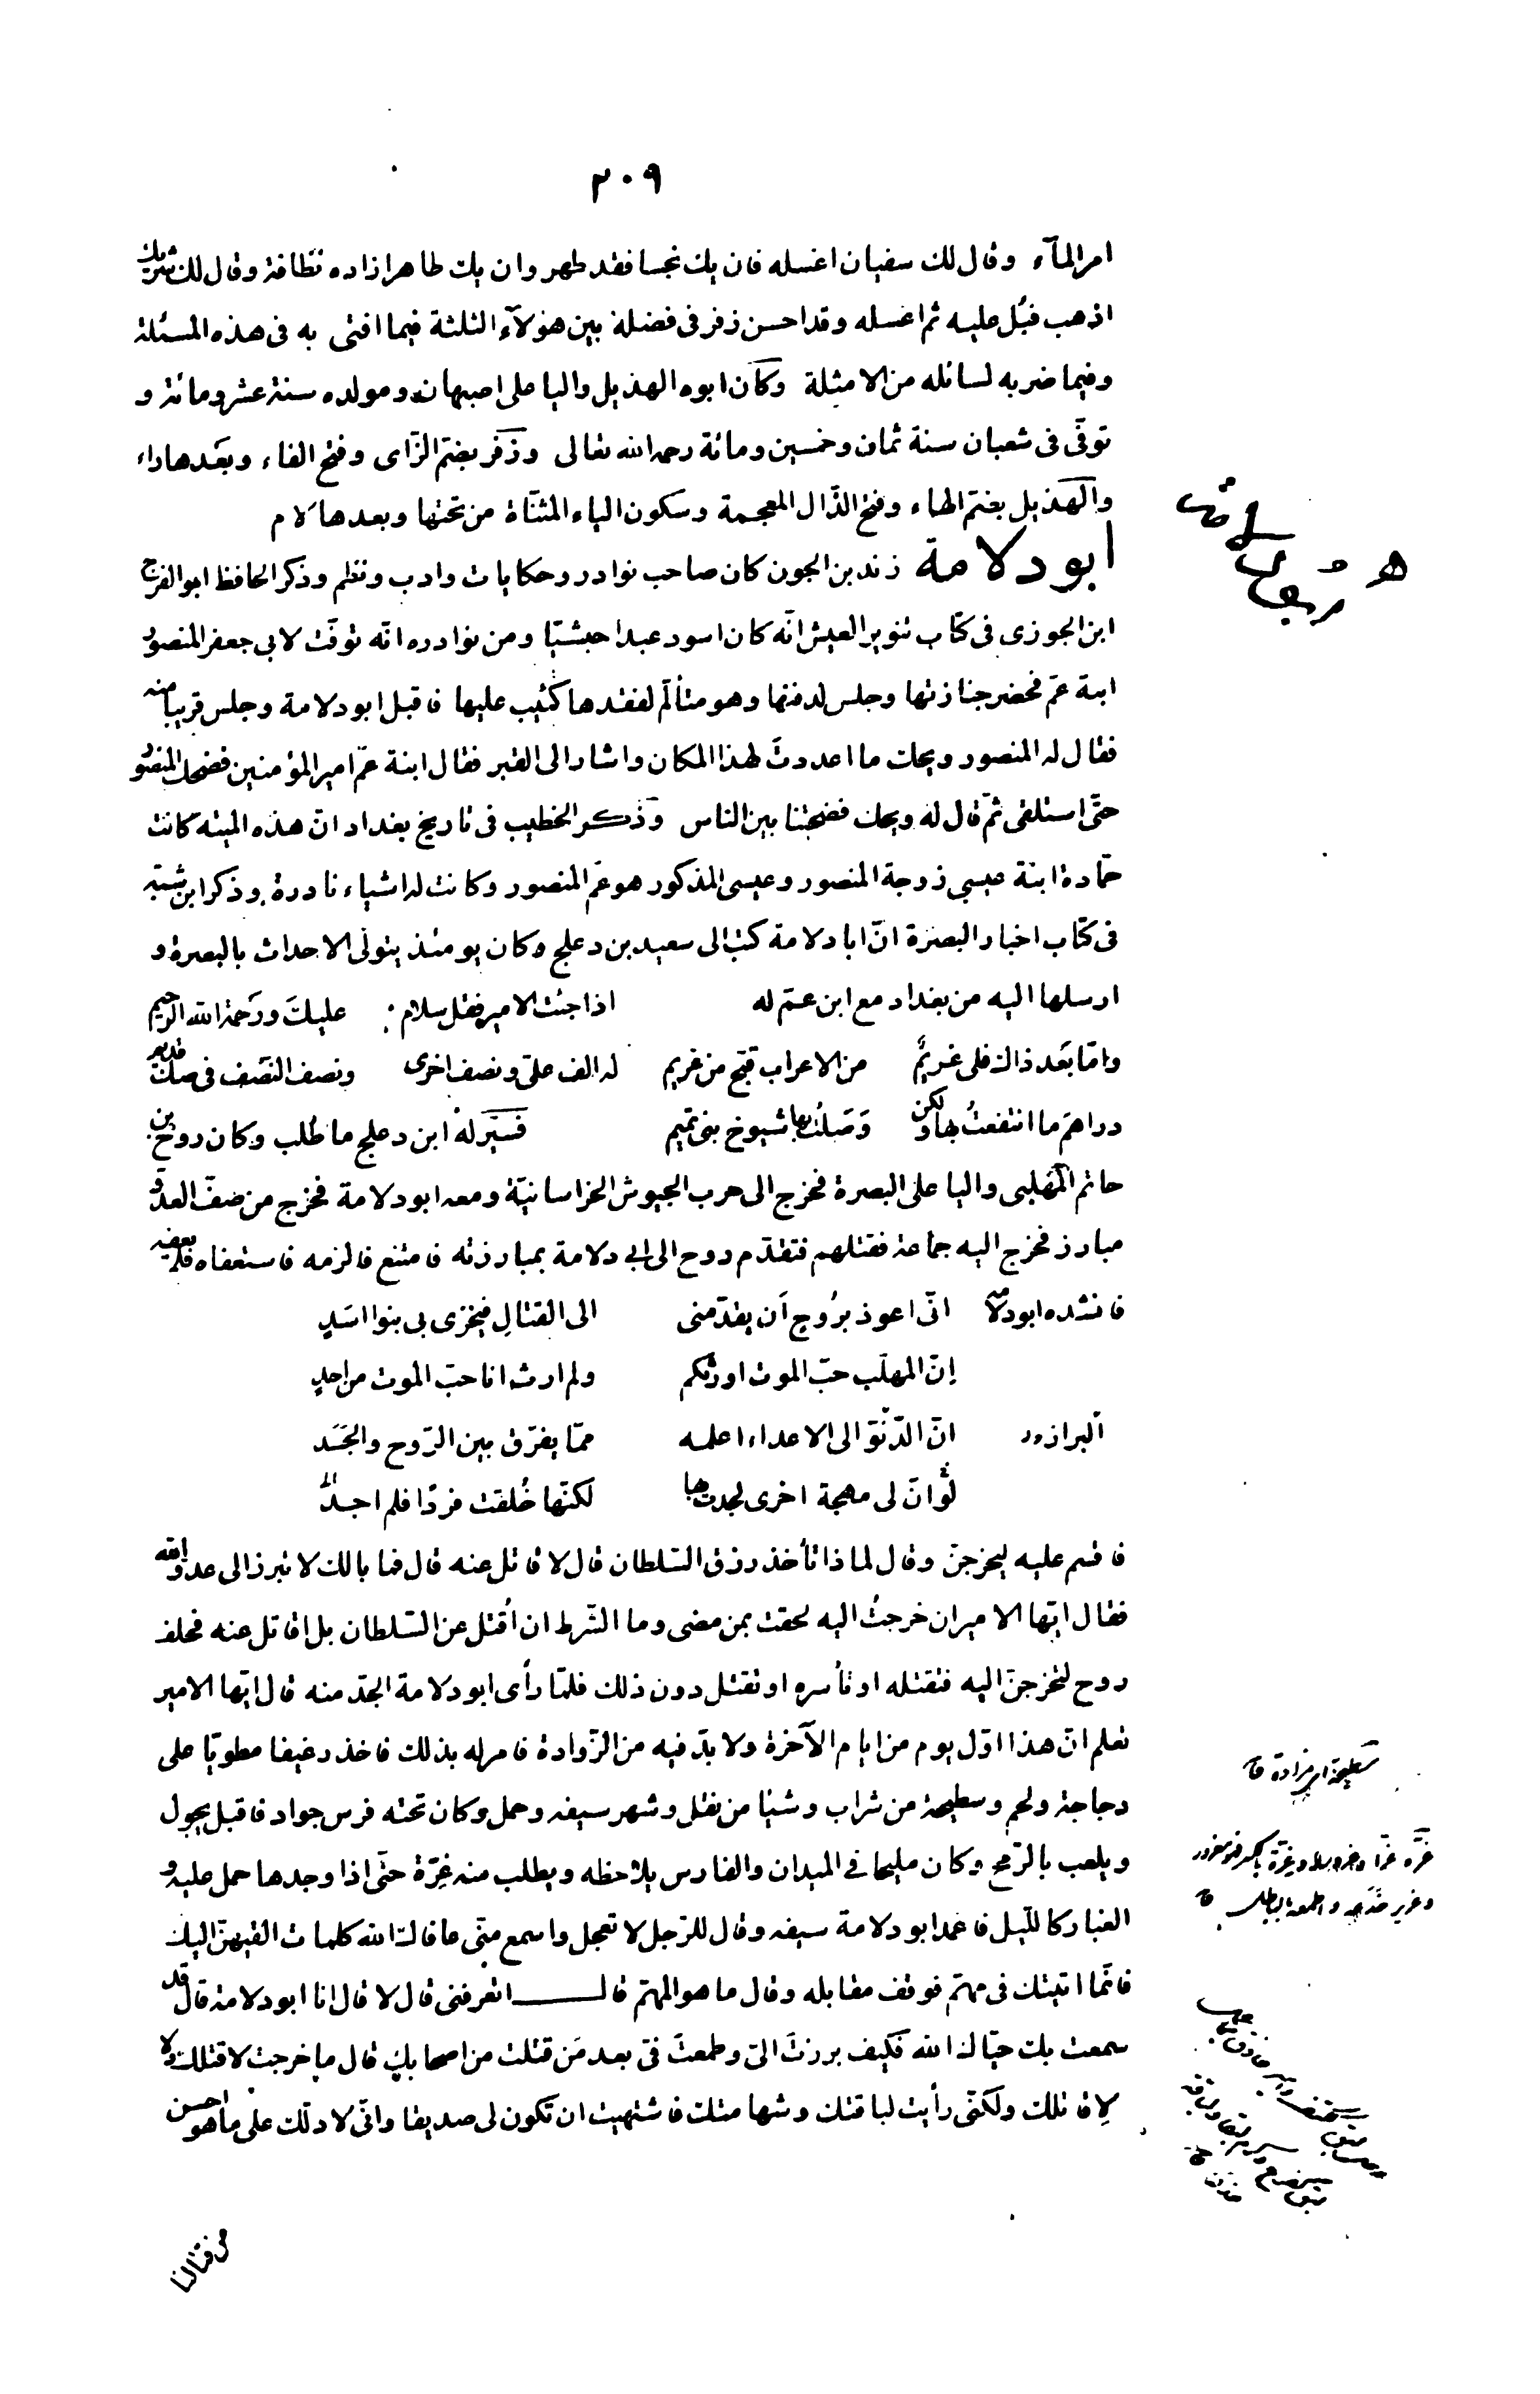 ٢٠٩
امر المآء وقال لك سفيان اغسله فان يك نجسا فقد طهر وان يك طاهرا زاده نظافة وقال لك شريك
اذهب فبُل عليه ثم اغسله وقد احسن زفر فى فضله بين هؤلآء الثلثة فيما افتى به فى هذه المسئلة
وفيما ضربه لسائله من الامثلة وكان ابوه الهذيل واليا على اصبهان ومولده سنة عشر ومائة و
توفّى فى شعبان سنة ثمان وخمسين ومائة رحمه الله تعالى وزفر بضم الزّاى وفتح الفاء وبعدها راء
والهذيل بضم الهاء وفتح الذّال المعجمة وسكون الياء المثنّاة من تحتها وبعدها لام
ابو دلامة زند بن الجون كان صاحب نوادر وحكايات وادب ونظم وذكر الحافظ ابو الفرج
ابن الجوزى فى كتاب تنوير الغبش انّه كان اسود عبدا حبشيّا ومن نوادره انّه توفّت لابى جعفر المنصور
ابنة عمّ فحضر جنازتها وجلس لدفنها وهو متألّم لفقدها كئيب عليها فاقبل ابو دلامة وجلس قريبا منه
فقال له المنصور ويحك ما اعددتَ لهذا المكان واشار الى القبر فقال ابنة عمّ امير المؤمنين فضحك المنصور
حتّى استلقى ثمّ قال له ويحك فضحتنا بين الناس وذكر الخطيب فى تاريخ بغداد انّ هذه الميته كانت
حمّادة ابنة عيسى زوجة المنصور وعيسى المذكور هو عمّ المنصور وكانت له اشياء نادرة وذكر ابن شبّه
فى كتاب اخبار البصرة انّ ابا دلامة كتب الى سعيد بن دعلج وكان يومئذ يتولّى الاحداث بالبصرة و
ارسلها اليه من بغداد مع ابن عمّ له اذا جئت الامير فقل سلام عليك ورحمة الله الرحيم
وامّا بعَد ذاك فلى غريمٌ من الاعراب قبّح من غريم له الف علىّ ونصف اخرى ونصف النّصف فى صكّ قديم
دراهمَ ما انتفعتُ بها ولكن وَصَلتُ بها شيوخ بنى تميم فسَيّر لهُ ابن دعلج ما طلب وكان روح بن
حاتم المهلبى واليا على البصرة فخرج الى حرب الجيوش الخراسانيّة ومعه ابو دلامة فخرج من صفّ العدوّ
مبارز فخرج اليه جماعة فقتلهم فتقدّم روح الى ابى دلامة بمبارزته فامتنع فالزمه فاستعفاه فلم يعفه
فانشده ابو دلامه انّى اعوذ برُوحٍ أن يقدّمنى الى القتالِ فيخزى بى بنوا اسَدٍ
إنّ المهلّب حبّ الموت اورثكم ولم ارث انا حبّ الموت من احدٍ
انّ الدّنوّ الى الاعداء اعلمه ممّا يفرّق بين الرّوح والجَسَد
لو انّ لى مهجة اخرى لجدت بها لكنّها خُلقت فردًا فلم اجد
فاقسم عليه ليخرجنّ وقال لماذا تأخذ رزق السّلطان قال لاقاتل عنه قال فما بالك لا تبرز الى عدوّ الله
فقال ايّها الامير ان خرجتُ اليه لحقت بمن مضى وما الشّرط ان أُقتل عن السّلطان بل اقاتل عنه فحلف
روح لتخرجنّ اليه فتقتله او تأسره او تقتل دون ذلك فلمّا رأى ابو دلامة الجدّ منه قال ايّها الامير
تعلم انّ هذا اوّل يوم من ايام الآخرة ولا بدّ فيه من الزّوادة فامر له بذلك فاخذ رغيفا مطويّا على
دجاجة ولحم وسطيحة من شراب وشيًا من نقل وشهر سيفه وحمل وكان تحته فرس جواد فاقبل يجول
ويلعب بالرّمح وكان مليحا فى الميدان والفارس يلاحظه ويطلب منه غِرّة حتّى اذا وجدها حمل عليه و
الغبار كاللّيل فاغمد ابو دلامة سيفه وقال للرّجل لا تعجل واسمع منّى عافاك الله كلمات القيهنّ اليك
فانّما اتيتك فى مهمّ فوقف مقابله وقال ما هو المهمّ قال اتعرفنى قال لا قال انا ابو دلامة قال قد
سمعت بك حيّاك الله فكيف برزتَ الىّ وطمعتَ فىّ بعد مَن قتلت من اصحابك قال ما خرجت لاقتلك ولا
لاقاتلك ولكنّى رأيت لباقتك وشهامتك فاشتهيت ان تكون لى صديقا وانّى لادلّك على ما هو احسن
من قتالنا
سطيحة اى مزادة